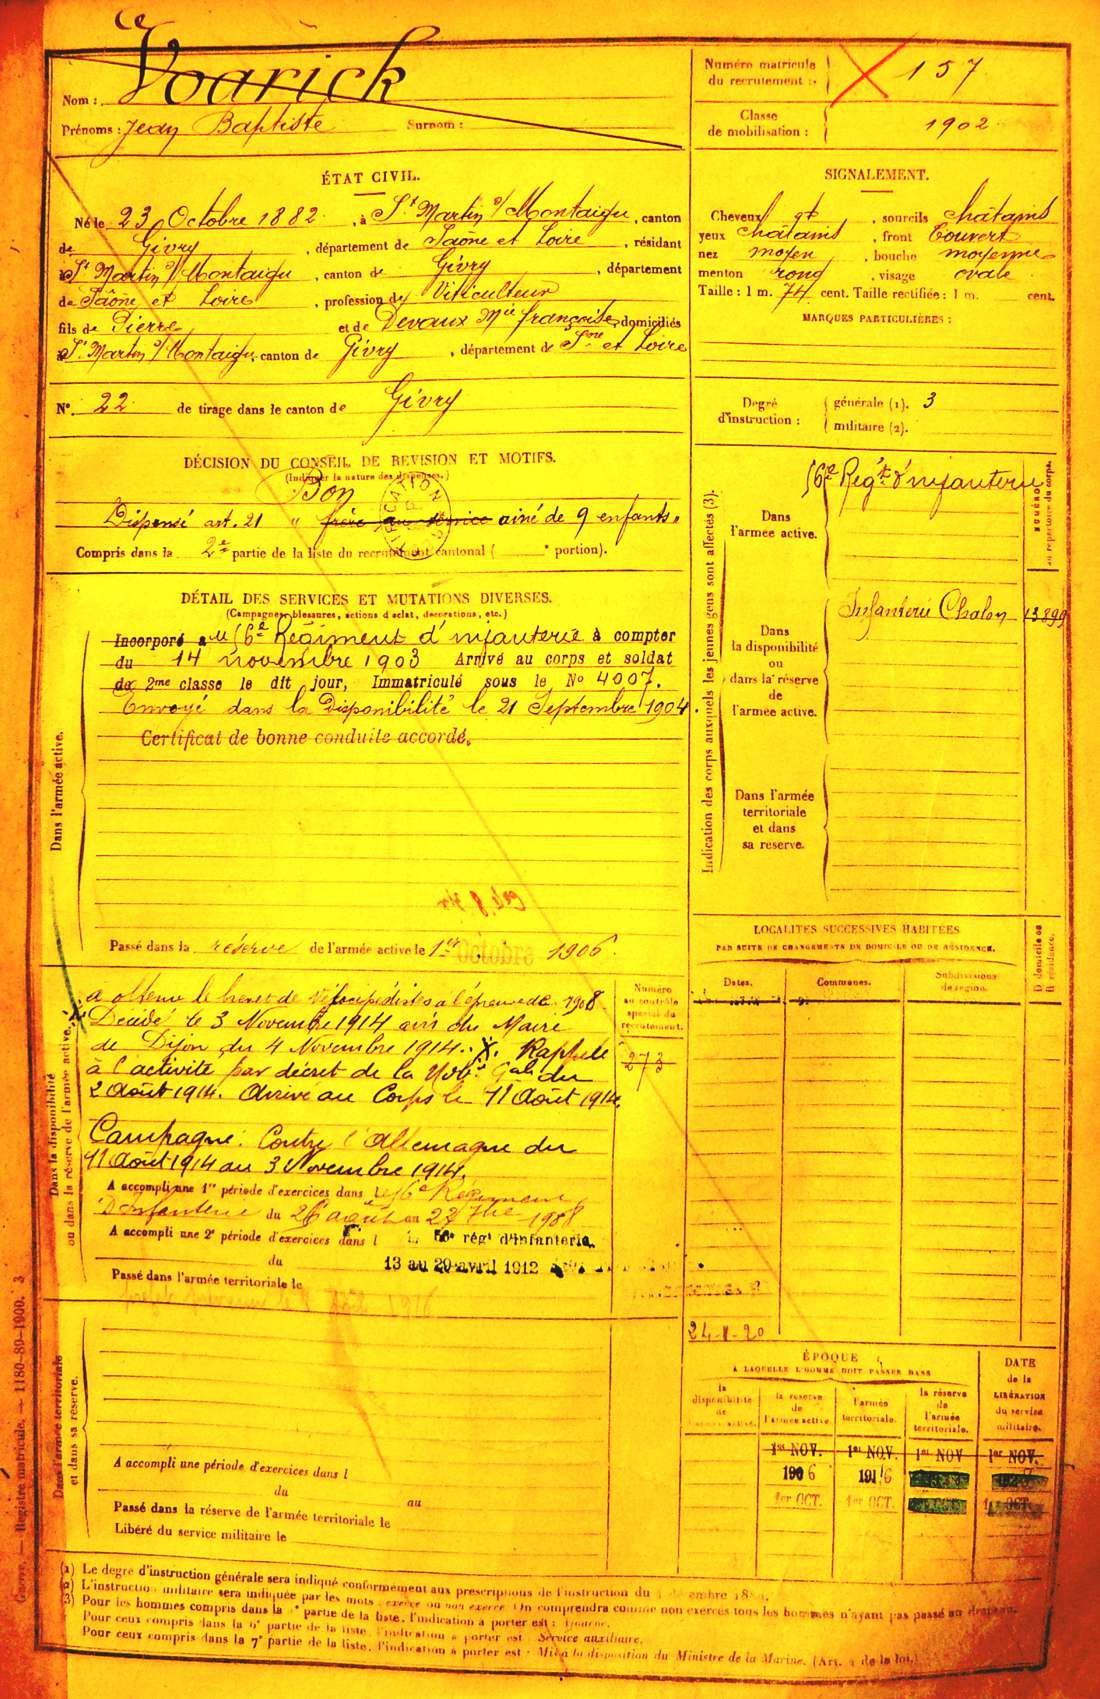 Nom : Voarick
Prénoms : Jean Baptiste Surnom :
Numéro matricule
du recrutement : 157
Classe
de mobilisation : 1902
ÉTAT CIVIL.
Né le 23 Octobre 1882, à St Martin s/ Montaigu, canton
de Givry, département de Saône et Loire, résidant
à St Martin s/ Montaigu, canton de Givry, département
de Saône et Loire, profession de Viticulteur
fils de Pierre et de Devaux Mie françoise, domiciliés
à St Martin s/ Montaigu, canton de Givry, département de Sne et Loire
N° 22 de tirage dans le canton de Givry
SIGNALEMENT.
Cheveux et, sourcils châtains
yeux châtains, front Couvert
nez moyen, bouche moyenne
menton rond, visage ovale
Taille : 1 m. 74 cent. Taille rectifiée : 1 m. cent.
MARQUES PARTICULIÈRES :
Degré
d'instruction :
générale (1). 3
militaire (2).
DÉCISION DU CONSEIL DE REVISION ET MOTIFS.
(Indiquer la nature des dispenses.)
Bon
Dispensé art. 21 " frère au service ainé de 9 enfants "
Compris dans la 2e partie de la liste du recrutement cantonal ( e portion).
DÉTAIL DES SERVICES ET MUTATIONS DIVERSES.
(Campagnes, blessures, actions d'éclat, décorations, etc.)
Dans l'armée active.
Incorporé au 56e Régiment d'infanterie à compter
du 14 novembre 1903 Arrivé au corps et soldat
de 2me classe le dit jour, Immatriculé sous le No 4007.
Envoyé dans la Disponibilité le 21 Septembre 1904.
Certificat de bonne conduite accordé.
Passé dans la réserve de l'armée active le 1er Octobre 1906.
Indication des corps auxquels les jeunes gens sont affectés (3).
56e Regt d'infanterie
NUMÉRO
au répertoire du corps.
Dans
l'armée active.
Infanterie Chalon 13899
Dans
la disponibilité
ou
dans la réserve
de
l'armée active.
Dans l'armée
territoriale
et dans
sa réserve.
LOCALITÉS SUCCESSIVES HABITÉES
PAR SUITE DE CHANGEMENTS DE DOMICILE OU DE RÉSIDENCE.
Dates. Communes. Subdivisions
de région.
D domicile ou
R résidence.
Dans la disponibilité
ou dans la réserve de l'armée active.
Numéro
au contrôle
spécial du
recrutement.
273
a obtenu le brevet de Vélocipédistes à l'épreuve de 1908
Décédé le 3 Novembre 1914 avis du Maire
de Dijon du 4 Novembre 1914. X. Rappelé
à l'activité par décret de la Mobon Gale du
2 Août 1914. Arrivé au Corps le 11 Août 1914.
Campagne : Contre l'Allemagne du
11 Août 1914 au 3 Novembre 1914.
A accompli une 1re période d'exercices dans le 56e Régiment
D'Infanterie du 26 août au 22 7bre 1908
A accompli une 2e période d'exercices dans l 56e régt d'Infanterie
du 13 au 29 avril 1912
Passé dans l'armée territoriale le
24-8-20
Dans l'armée territoriale
et dans sa réserve.
A accompli une période d'exercices dans l
du au
Passé dans la réserve de l'armée territoriale le
Libéré du service militaire le
ÉPOQUE
À LAQUELLE L'HOMME DOIT PASSER DANS
DATE
de la
LIBÉRATION
du service
militaire.
la
disponibilité
de
l'armée active.
la réserve
de
l'armée active.
l'armée
territoriale.
la réserve
de
l'armée
territoriale.
1er NOV. 1er NOV. 1er NOV 1er NOV.
1906 1916
1er OCT. 1er OCT. 1er OCT.
Guerre. — Registre matricule. — 1180-89-1900. 3
(1) Le degré d'instruction générale sera indiqué conformément aux prescriptions de l'instruction du
(2) L'instruction militaire sera indiquée par les mots : exercé ou non exercé. On comprendra comme non exercés tous les hommes n'ayant pas passé au drapeau.
(3) Pour les hommes compris dans la partie de la liste, l'indication à porter est :
Pour ceux compris dans la 6e partie de la liste, l'indication à porter est : Service auxiliaire.
Pour ceux compris dans la 7e partie de la liste, l'indication à porter est : Mis à la disposition du Ministre de la Marine. (Art. 4 de la loi.)